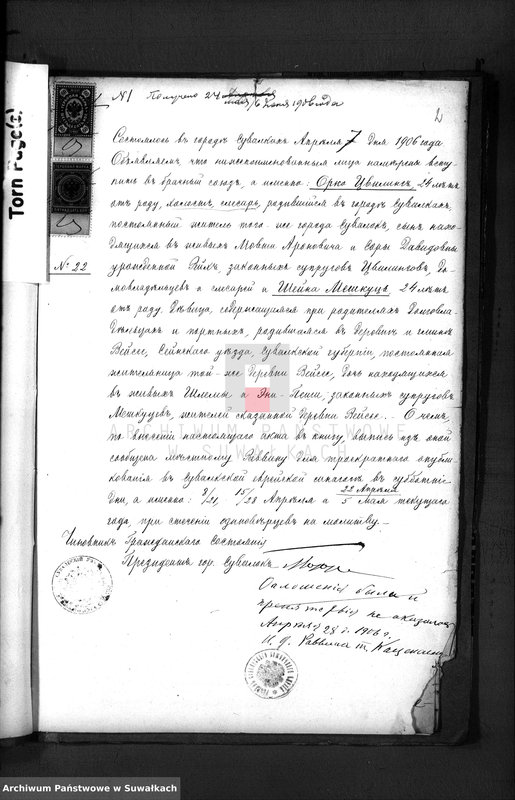 Torn Page(s)
№ 1 Получено 24 мая/6 июня 1906 года
2
Состоялось въ городѣ Сувалкахъ Апрѣля 7 дня 1906 года
Объявляемъ, что нижепоименованныя лица намѣрены всту
пить въ брачный союзъ, а именно: Орко Цвилингъ, 24 лѣтъ
отъ роду, холостъ, слесарь, родившійся въ городѣ Сувалкахъ,
постоянный житель того-же города Сувалокъ, сынъ нахо-
дящихся въ живыхъ Ароновича и Соры Давидовны
урожденной законныхъ супруговъ Цвилинговъ, до
мовладѣльцевъ и слесарей и Шейна Мешкуцъ, 24 лѣтъ
№ 22
отъ роду, дѣвица, содержащаяся при родителяхъ домовла-
дѣльцахъ и портныхъ, родившаяся въ деревнѣ и гминѣ
Вейсее, Сейнскаго уѣзда, Сувалкской губерніи, постоянная
жительница той-же деревни Вейсее, дочь находящихся
въ живыхъ Шлемы и законныхъ супруговъ
Мешкуцовъ, жителей сказанной деревни Вейсее. - О чемъ,
по внесеніи настоящаго акта въ книгу, выпись изъ оной
сообщена мѣстному Раввину для троекратнаго опубли
кованія въ Сувалкской еврейской синагогѣ въ субботніе
дни, а именно: 8/21, 15/28 Апрѣля и 22 Апрѣля/5 Мая текущаго
года, при стеченіи единовѣрцевъ на молитву.
Чиновникъ Гражданскаго Состоянія
Президентъ гор. Сувалокъ
Оглашенія были и
препятствія не оказалось
Апрѣля 28 д. 1906 г.
И. д. Раввина
ARCHIWUM PAŃSTWOWE
W SUWAŁKACH
Archiwum Państwowe w Suwałkach